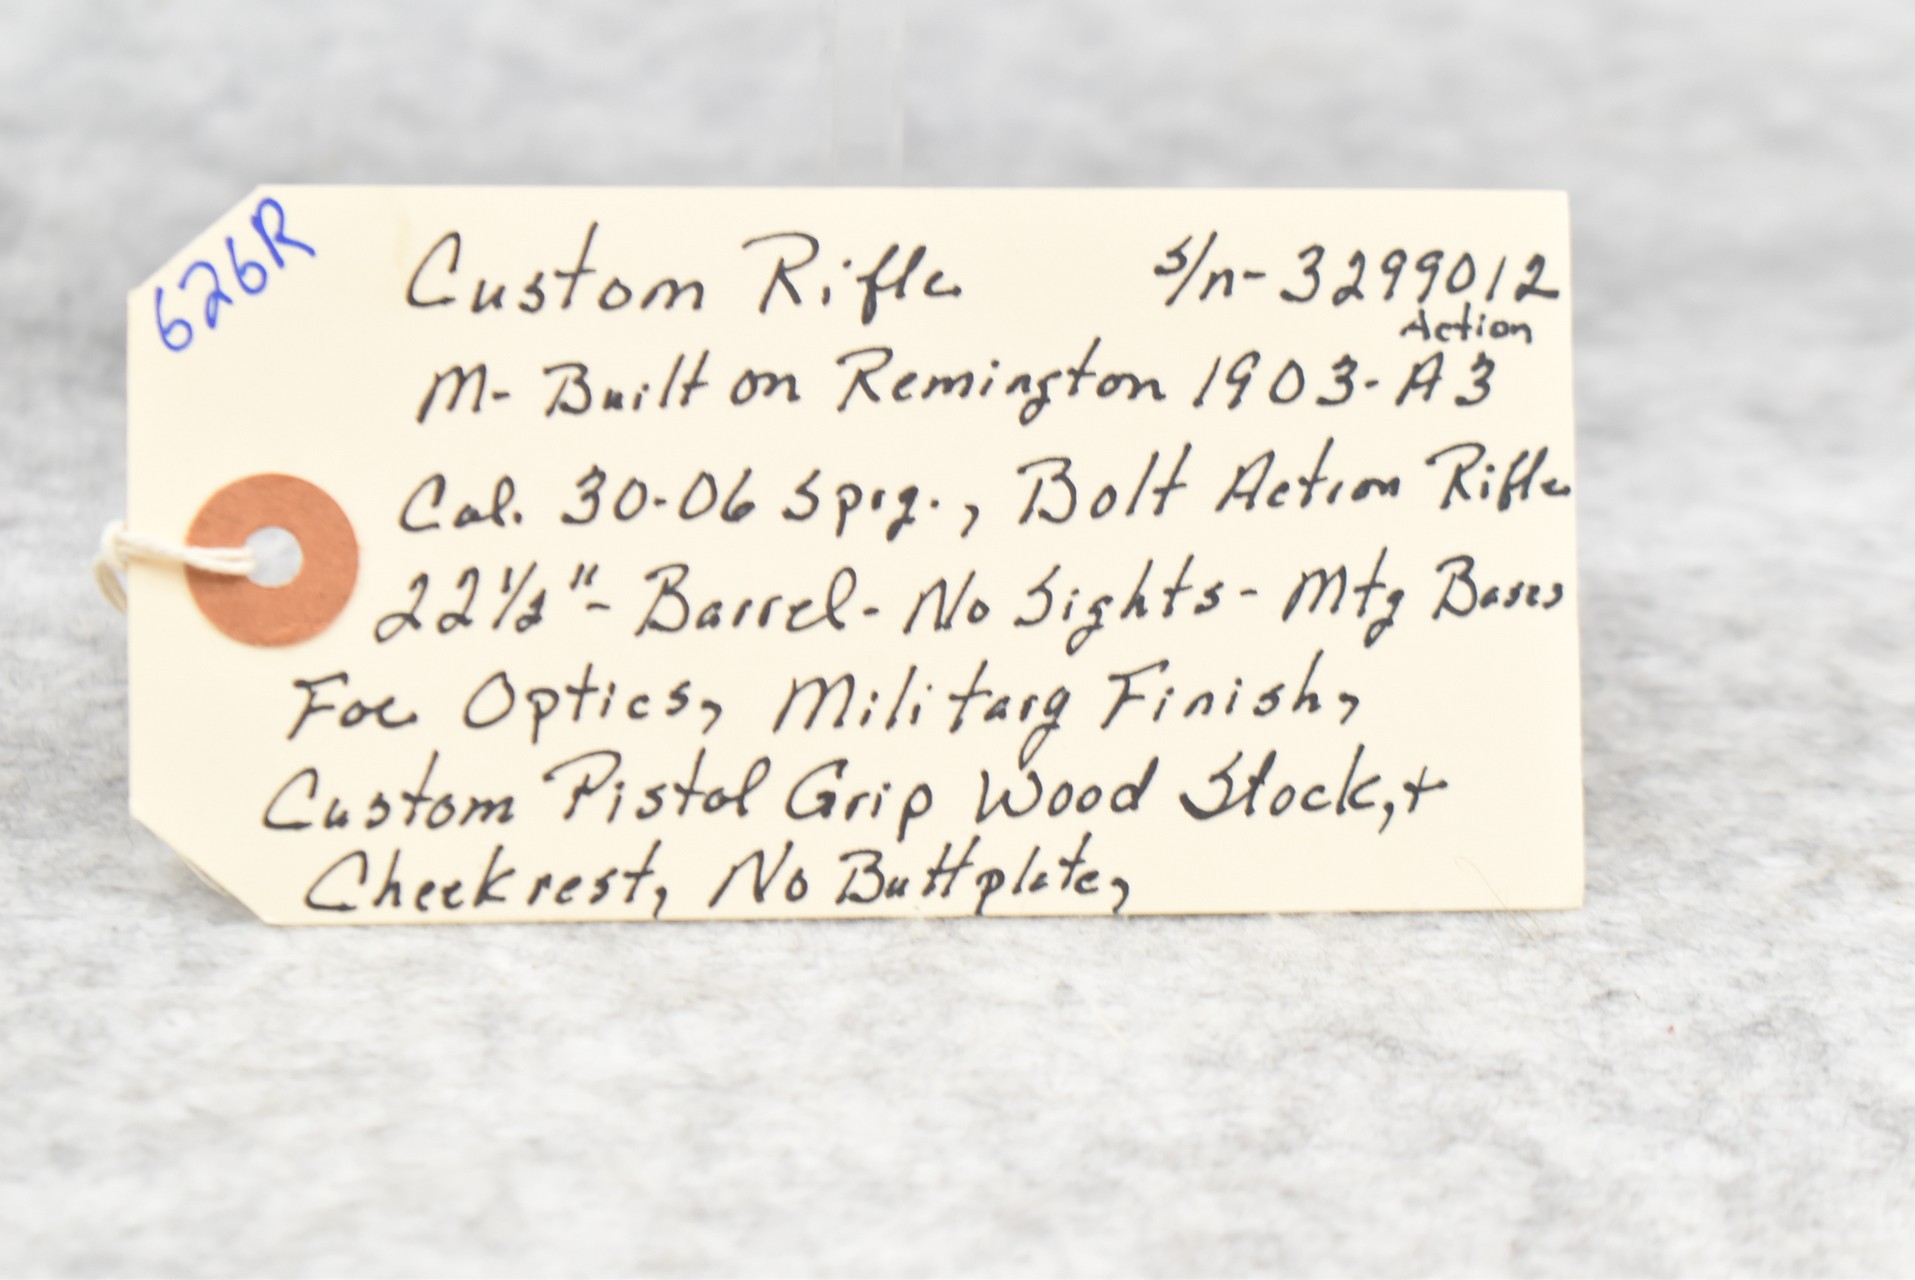 626R
Custom Rifle s/n- 3299012
Action
M- Built on Remington 1903-A3
Cal. 30-06 Sprg., Bolt Action Rifle
22 1/2"- Barrel- No Sights- Mtg Bases
For Optics, Military Finish,
Custom Pistol Grip Wood Stock, +
Cheekrest, No Buttplate,